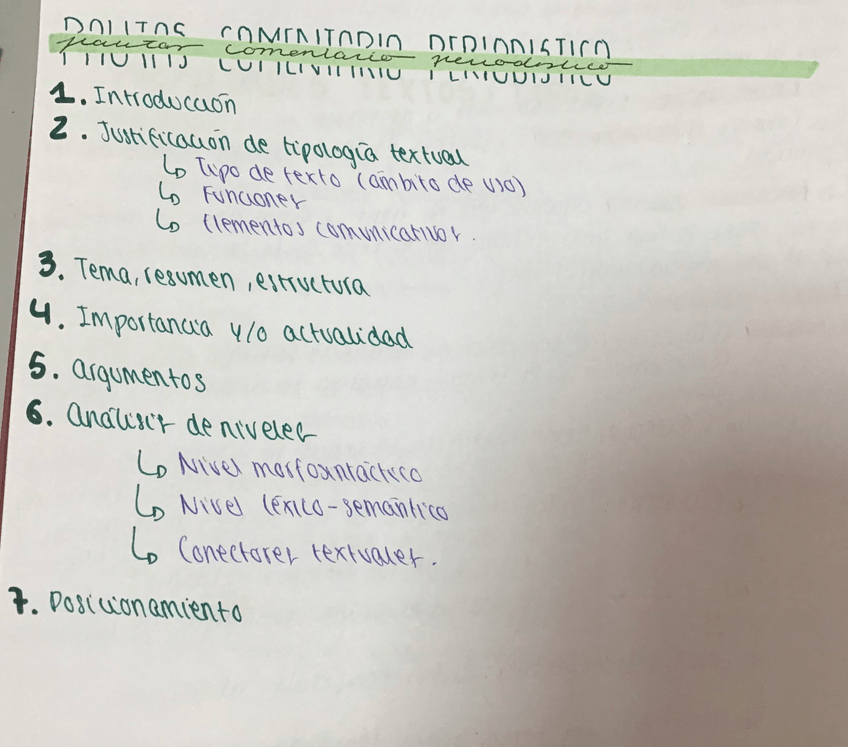 PAUTAS COMENTARIO PERIODISTICO
pautas comentario periodistico
1. Introducción
2. Justificación de tipología textual
↳ Tipo de texto (ámbito de uso)
↳ Funciones
↳ Elementos comunicativos.
3. Tema, resumen, estructura
4. Importancia y/o actualidad
5. argumentos
6. análisis de niveles
↳ Nivel morfosintáctico
↳ Nivel léxico-semántico
↳ Conectores textuales.
7. Posicionamiento